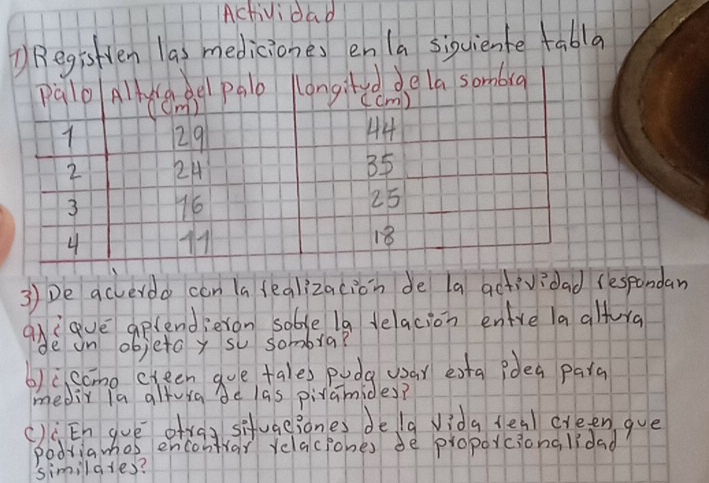 Actividad
1) Registren las mediciones en la siguiente tabla
Palo Altura del palo (cm) longitud de la sombra (cm)
1 29 44
2 24 35
3 16 25
4 11 18
3) De acuerdo con la realización de la actividad respondan
a) ¿qué aprendieron sobre la relación entre la altura
de un objeto y su sombra?
b) ¿cómo creen que tales pudo usar esta idea para
medir la altura de las pirámides?
c) ¿En qué otras situaciones de la vida real creen que
podríamos encontrar relaciones de proporcionalidad
similares?